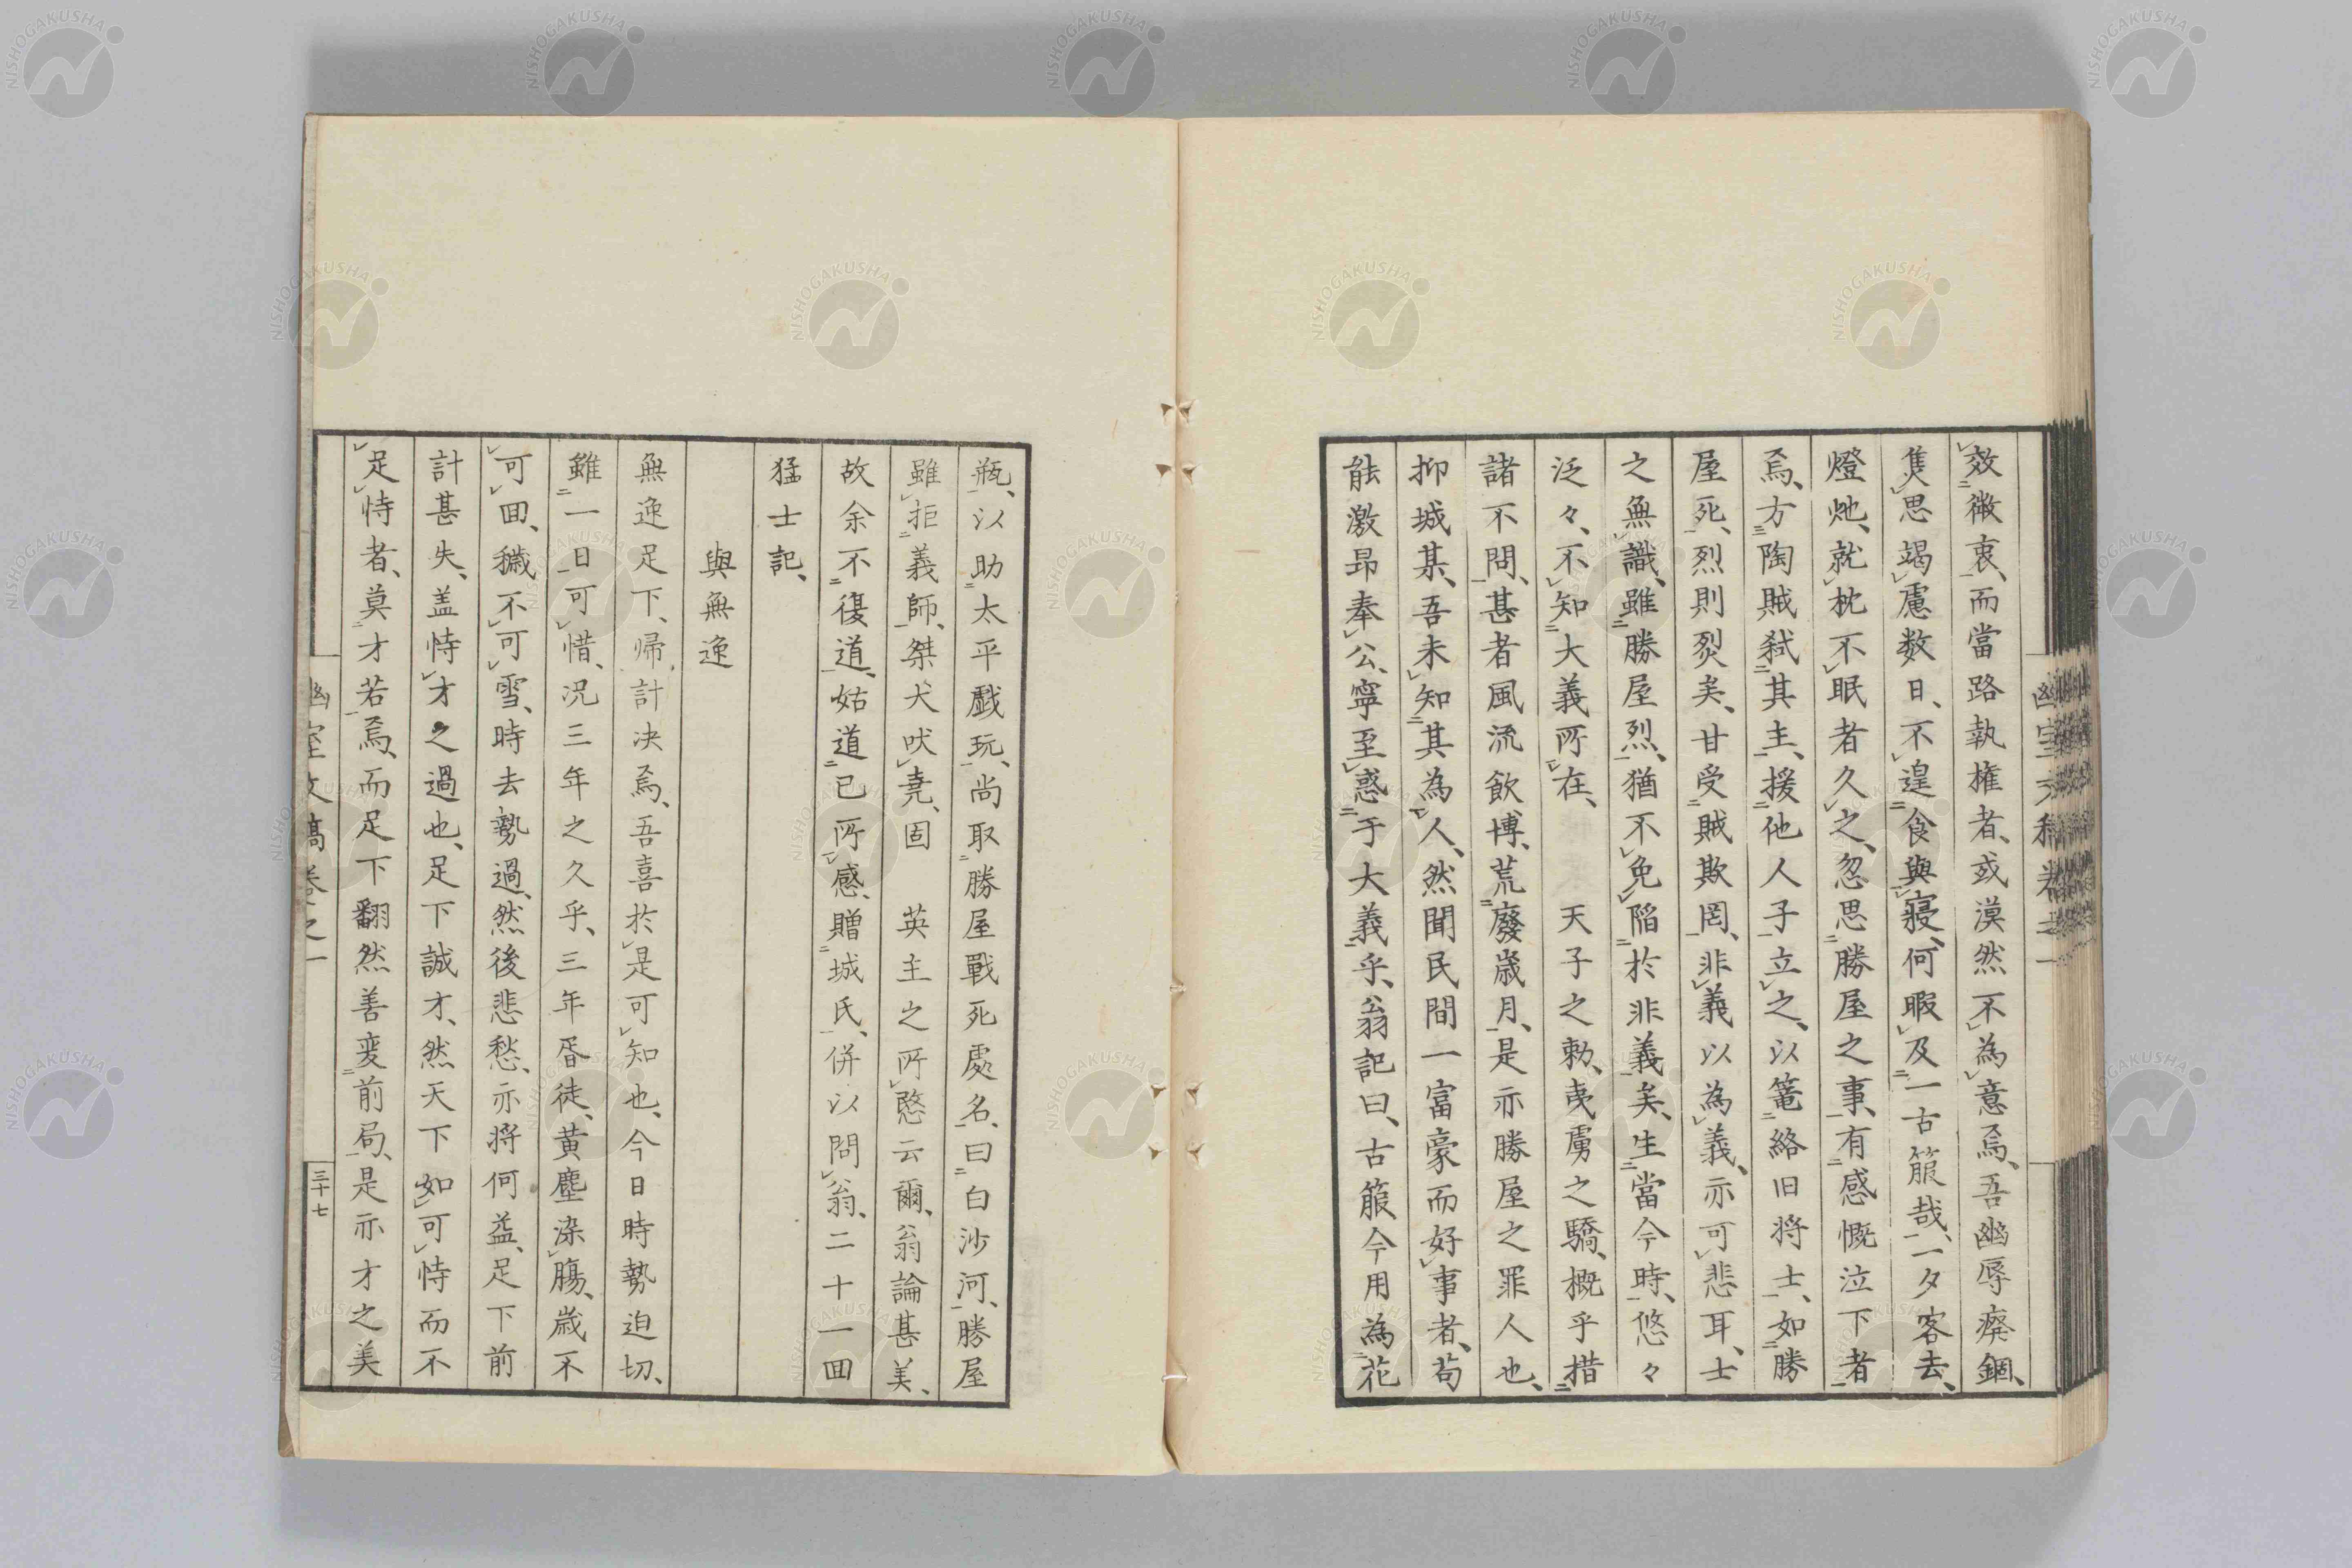 效微衷、而當路執権者、或漠然不為意焉、吾幽辱癈錮、
隻思竭慮数日、不遑食與寝、何暇及一古箙哉、一夕客去、
燈灺、就枕不眠者久之、忽思勝屋之事、有感慨泣下者
焉、方陶賊弑其主、援他人子立之、以篭絡旧将士、如勝
屋死、烈則烈矣、甘受賊欺罔、非義以為義、亦可悲耳、士
之無識、雖勝屋烈、猶不免陥於非義矣、生當今時、悠々
泛々、不知大義所在、 天子之勅、夷虜之驕、概乎措
諸不問、甚者風流飲博、荒廢歳月、是亦勝屋之罪人也、
抑城某、吾未知其為人、然聞民間一富豪而好事者、苟
能激昂奉公、寧至惑于大義乎、翁記曰、古箙今用為花
瓶、以助太平戯玩、尚取勝屋戰死處名、曰白沙河、勝屋
雖拒義師、桀犬吠堯、固 英主之所愍云爾、翁論甚美、
故余不復道、姑道已所感、贈城氏、併以問翁、二十一回
猛士記、
與無逸
無逸足下、帰計决焉、吾喜於是可知也、今日時勢迫切、
雖一日可惜、况三年之久乎、三年胥徒、黄塵染膓、歳不
可回、穢不可雪、時去勢過、然後悲愁、亦将何益、足下前
計甚失、盖恃才之過也、足下誠才、然天下如可恃而不
足恃者、莫才若焉、而足下翻然善変前局、是亦才之美
幽室文稿巻之一
三十七